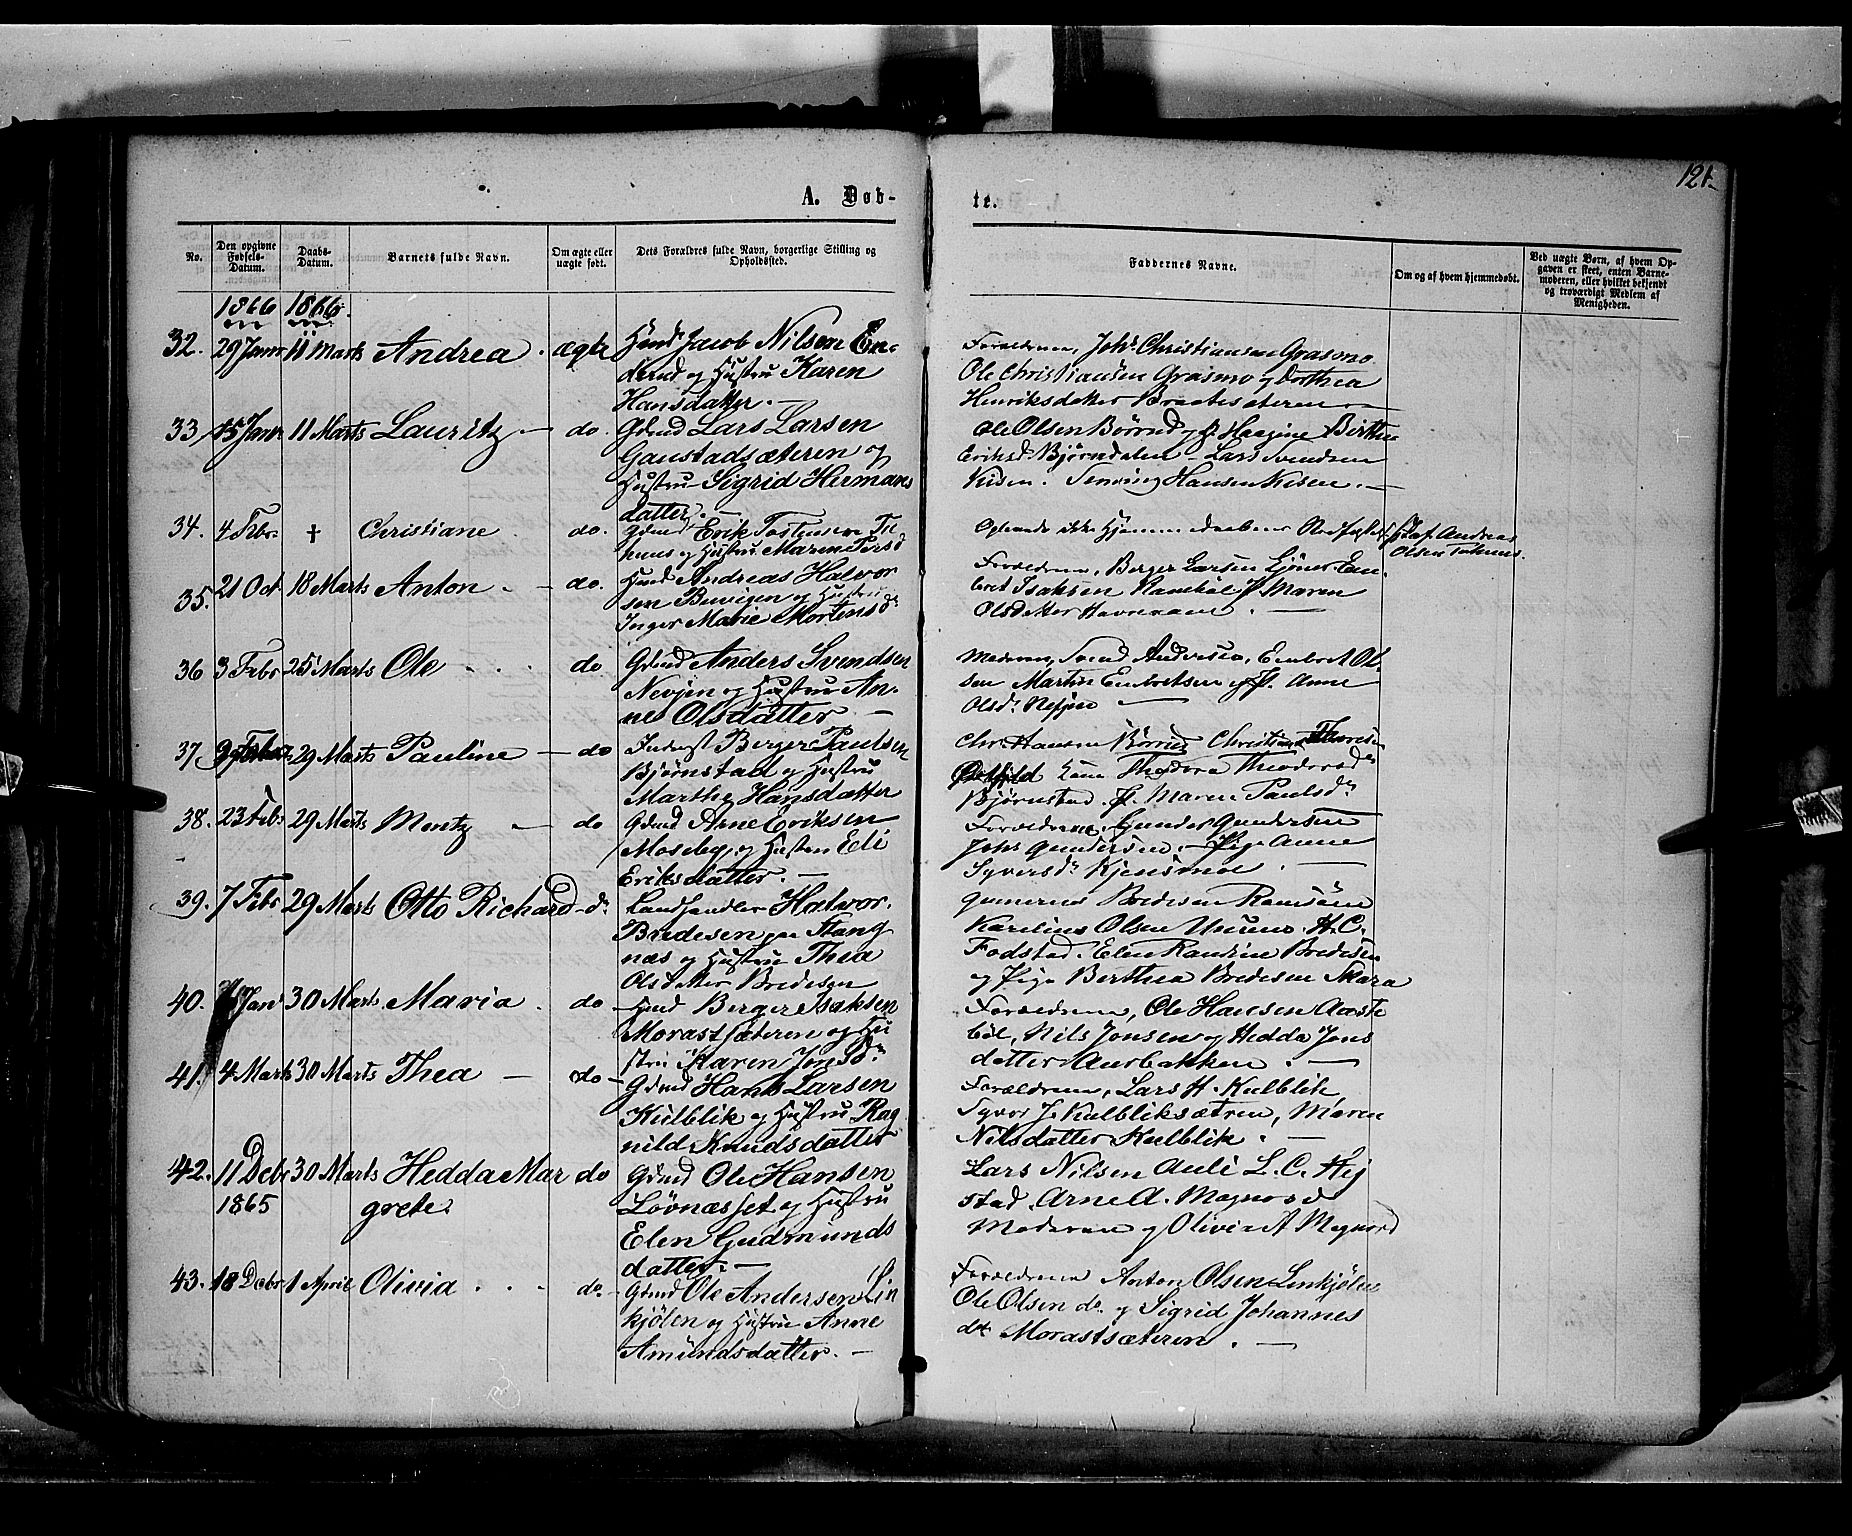 121.
A. Døb-
te.
No.
Den opgivne Fødsels-Datum.
Daabs-Datum.
Barnets fulde Navn.
Om ægte eller uægte født.
Dets Forældres fulde Navn, borgerlige Stilling og Opholdssted.
Faddernes Navne.
Om og af hvem hjemmedøbt.
Ved uægte Børn, af hvem Opgaven er skeet, enten Barnemoderen, eller hvilket bekjendt og troværdigt Medlem af Menigheden.
1866 1866
32. 29 Janr 11 Marts Andrea . ægte
Jacob Nilsen En-
derud og Hustru Karen
Hansdatter. —
Forældrene, Johs Christiansen Grasmo
Ole Christiansen Grasmo og Dorthea
Henriksdatter Braatesæteren —
33. 15 Janr 11 Marts Lauritz — do.
Gdmd Lars Larsen
Gaustadsæteren og
Hustru Sigrid Hermans
datter. —
Ole Olsen Børrud
Eriksd Bjørndalen — Lars Svendsen
Hansen
34. 4 Febr. † Christiane . do.
Gdmd Erik
og Hustru Maren
Andreas
Olsen
35. 21 Oct 18 Marts Anton . — do.
Andreas Halvor
sen og Hustru
Inger Marie Mortensdr
Forældrene, Berger Larsen
Isaksen Maren
Olsdatter . —
36 3 Febr 25 Marts Ole . . . do
Gdmd Anders Svendsen
Nevjen og Hustru An-
ne Olsdatter —
Moderen, Svend Andersen, Embret Ol-
sen Martin Embretsen og P. Anne
Olsdr —
37. Febr 29 Marts Pauline — do
Inderst Berger Paulsen
Bjørnstad og Hustru
Marthe Hansdatter
Chr. Hansen Børrud Christian
Theodora Theodorsdr
Bjørnstad. P. Maren Paulsdr
38. 23 Febr 29 Marts Mentz — do
Gdmd Arne Eriksen
Moseby, og Hustru Eli
Eriksdatter. —
Forældrene, Gunder Gundersen
Johs Gundersen. — Pige Anne
Syversdr Kjensmoe . —
39. 7 Febr 29 Marts Otto Richard — do
Landhandler Halvor
Bredesen paa Stang
næs og Hustru Thea
Olsdatter Bredesen
Gunerius Bredesen
Karelius Olsen H. C.
Fodstad. Elen Bredesen
og Pige Berthea Bredesen Skara
40. Janr 30 Marts Maria . do
Berger Isaksen
Morastsæteren og Hu
stru Karen Jonsdr
Forældrene, Ole Hansen Aaste
böl, Nils Jonsen og Hedda Jons
datter Aurbakken . —
41. 4 Marts 30 Marts Thea — do —
Gdmd Hans Larsen
Kulblik og Hustru Rag
nild Knudsdatter
Forældrene, Lars H. Kulblik,
Syver J. Kulbliksætren, Maren
Nilsdatter Kulblik . —
42. 11 Debr 30 Marts Hedda Mar do
1865 grete.
Gdmd Ole Hansen
Løvnæsset og Hustru
Elen Gudmunds
datter. —
Lars Nilsen Auli L. C. Hej
stad. Arne A. Magnord
Moderen og Olivia A Magnord
43. 18 Debr 1 April Olivia . . . do. —
Gdmd Ole Andersen Lin
kjølen og Hustru Anne
Amundsdatter. —
Forældrene Anton Olsen Linkjølen
Ole Olsen do. og Sigrid Johannes
dtr Morastsæteren . —